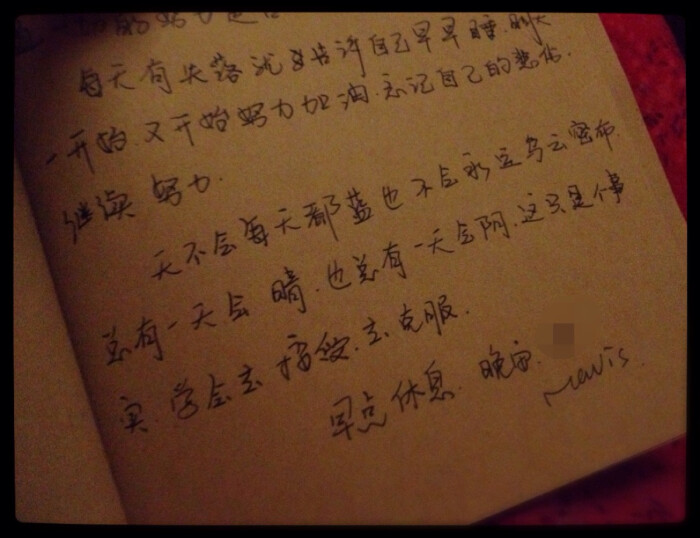 的努力
每天有失落就告许自己早早睡.明天
一开始.又开始努力加油.忘记自己的悲伤.
继续 努力.
天不会每天都蓝也不会永远乌云密布.
总有一天会 晴.也总有一天会阴.这只是个事
实.学会去 接受.去克服.
早点休息. 晚安.
Mavis.